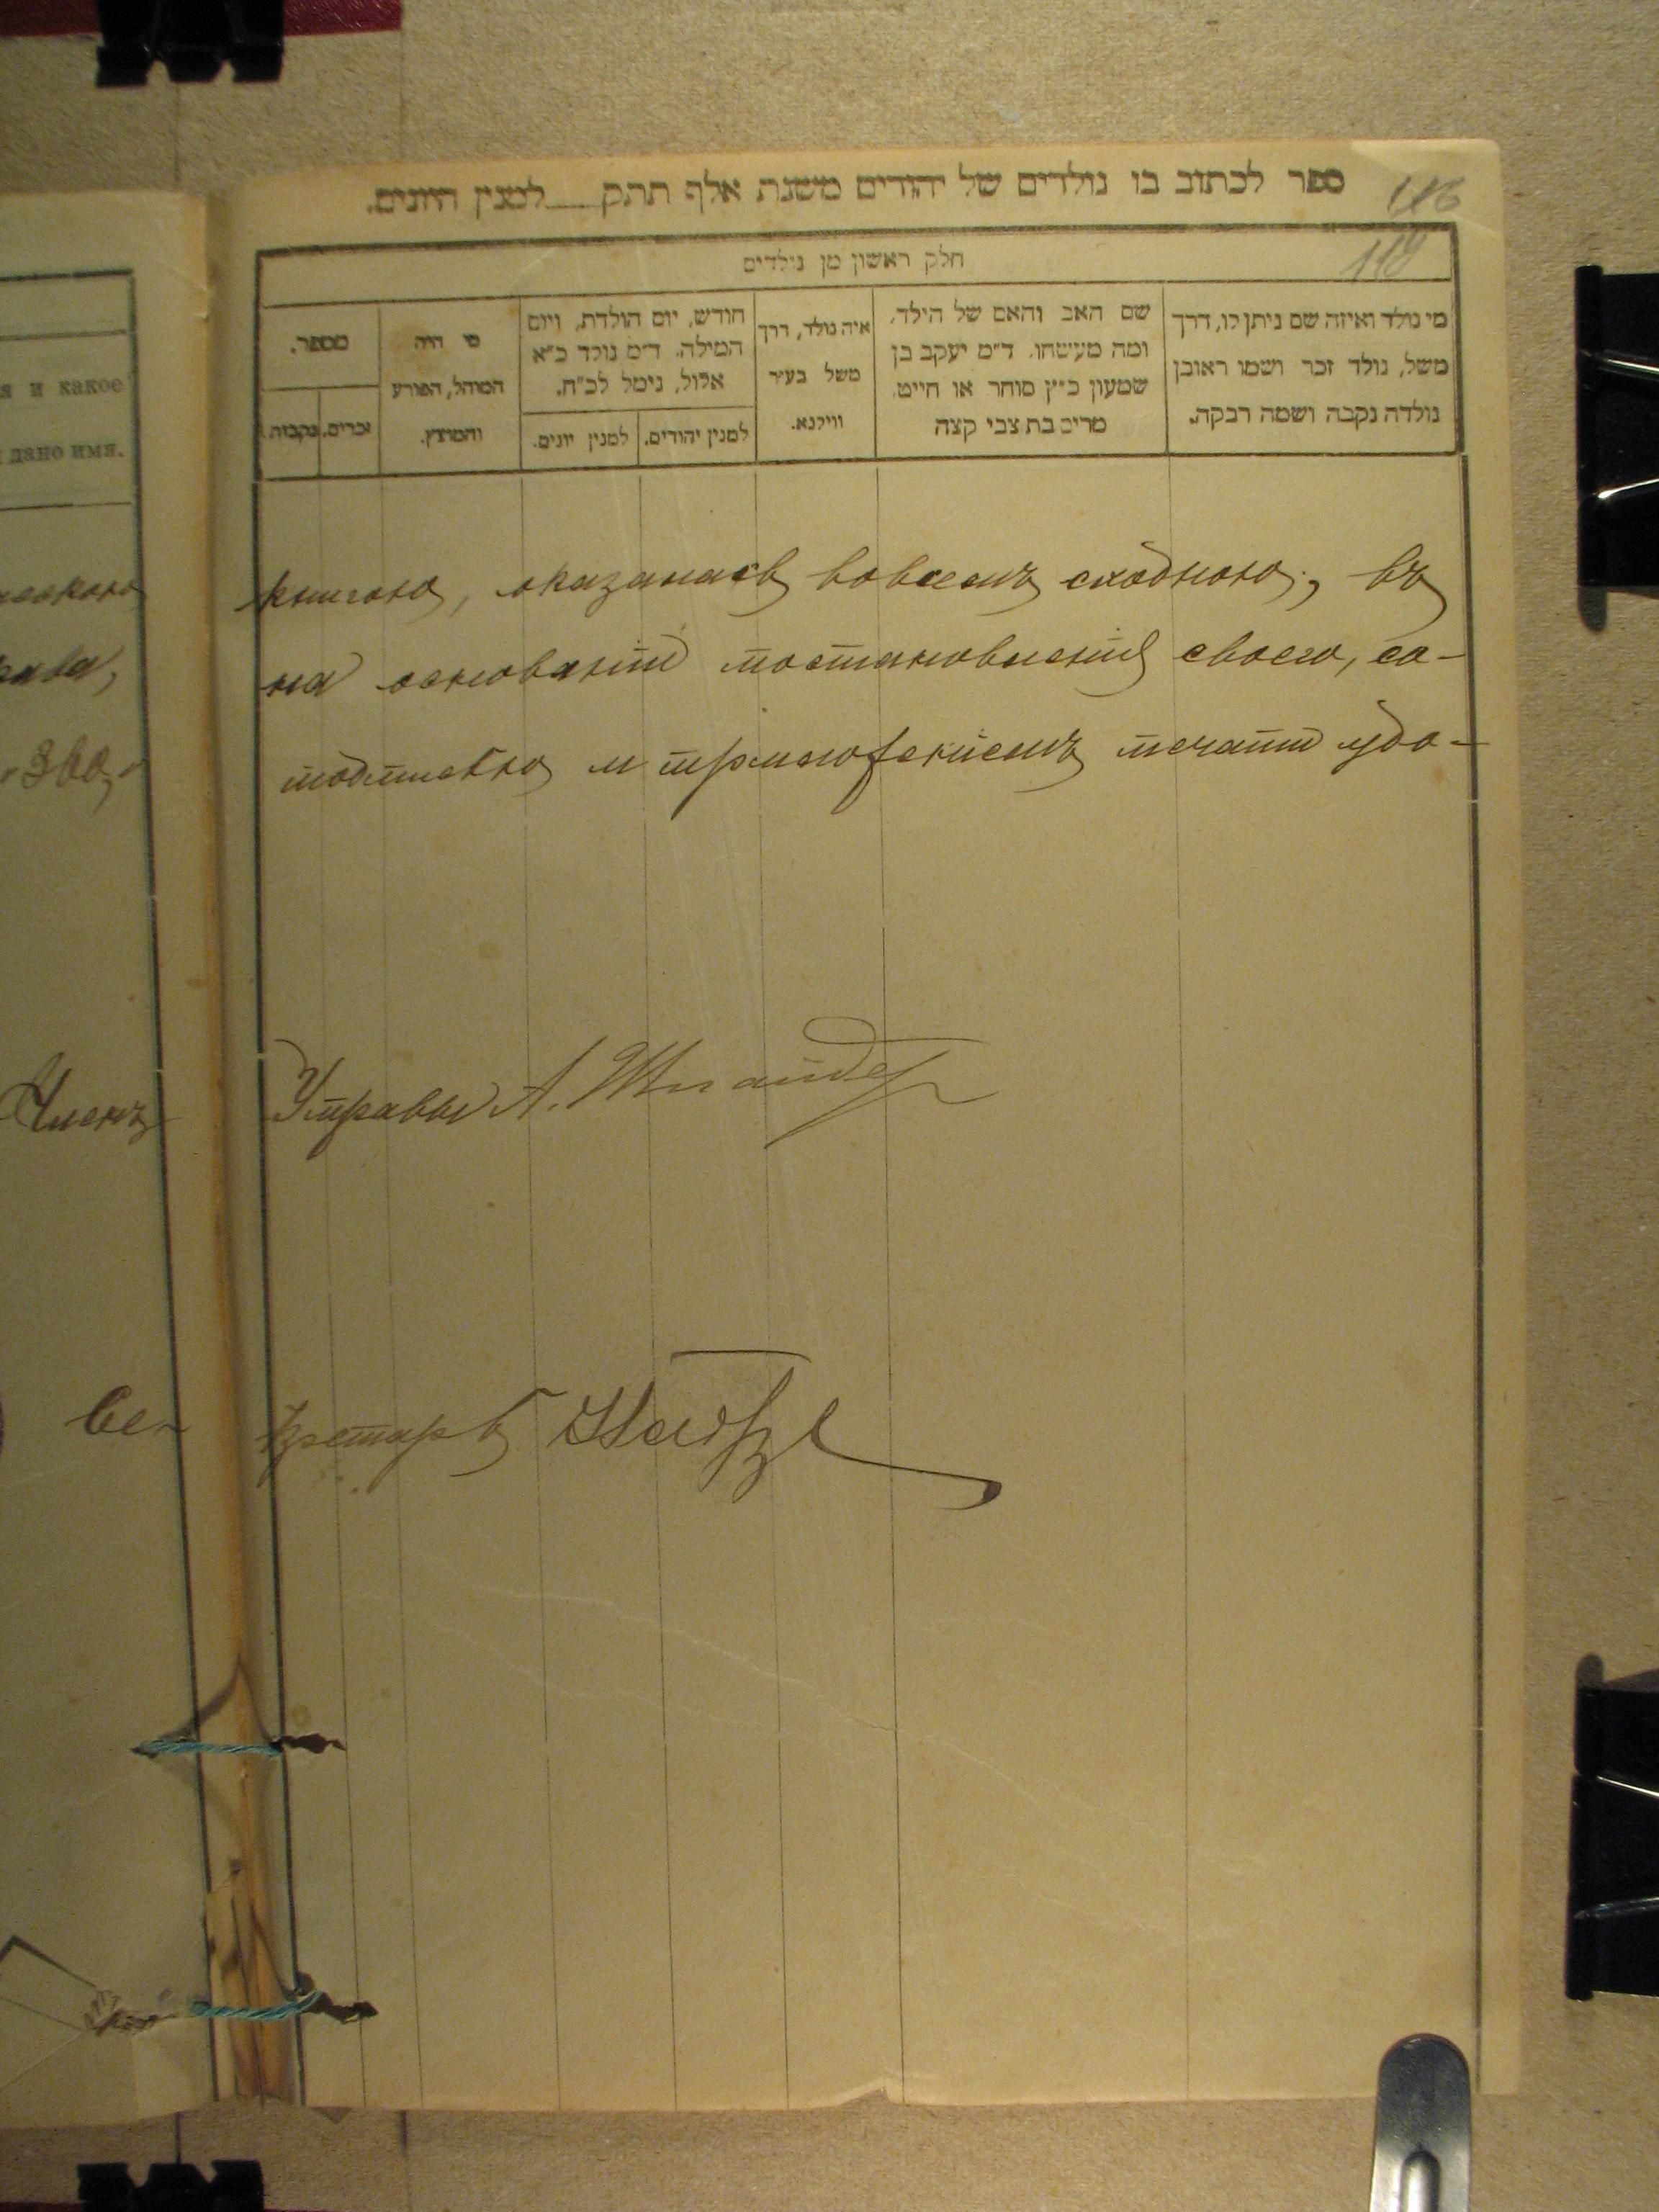 ספר לכתוב בו נולדים של יהודים משנת אלף תתק___למנין היונים.
118
חלק ראשון מן נולדים
מי נולד ואיזה שם ניתן לו, דרך
משל, נולד זכר ושמו ראובן
נולדה נקבה ושמה רבקה.
שם האב והאם של הילד,
ומה מעשהו. ד״מ יעקב בן
שמעון כ״ץ סוחר או חייט,
מרים בת צבי קצה
איה נולד, דרך
משל בעיר
ווילנא.
חודש, יום הולדת, ויום
המילה. ד״מ נולד כ״א
אלול, נימל לכ״ח.
למנין יהודים.
למנין יונים.
מי היה
המוהל, הפורע
והמוצץ.
מספר.
זכרים.
נקבות.
я и какое
дано имя.
книгою, оказалась во всемъ сходною; въ
на основаніи постановленія своего, со-
подписью и приложеніемъ печати удо-
"360,"
Членъ Управы А.
Се-
кретарь